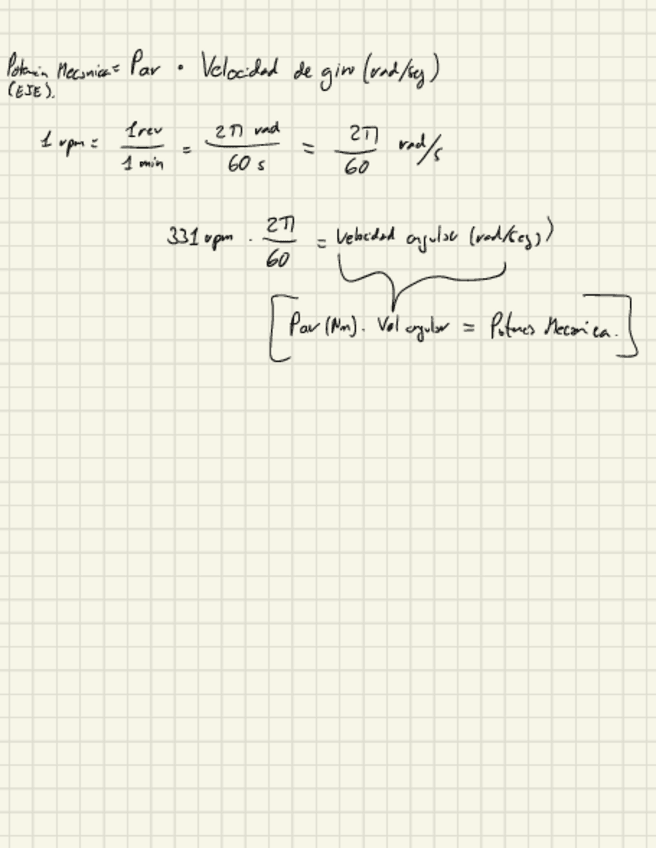 Potencia Mecanica = Par • Velocidad de giro (rad/seg)
(EJE).
1 rpm = 1 rev / 1 min = 2π rad / 60 s = 2π / 60 rad/s
331 rpm · 2π / 60 = Velocidad angular (rad/seg))
[Par (Nm). Vel angular = Potencia Mecanica.]